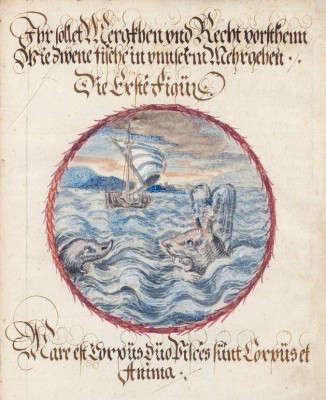 Ihr sollet Merckhen vnd Recht vorsthenn
Wie zwene fische in vnnserm Mehr gehen.
Die Erste Figur
Mare est Corpus Duo Pisces sunt Corpus et
Anima.